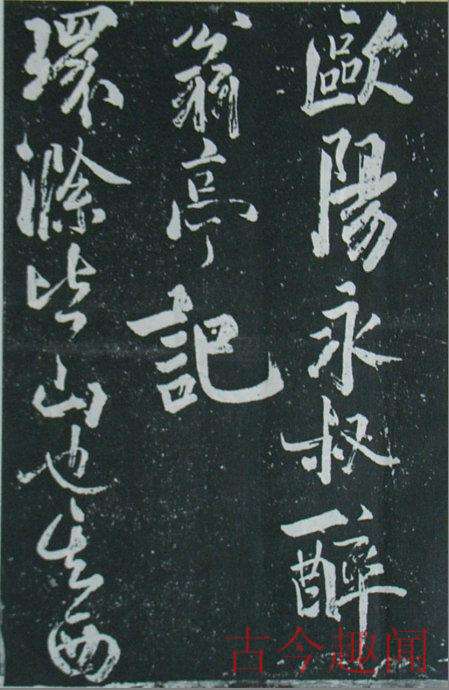 歐陽永叔醉
翁亭記
環滁皆山也其西
古今趣闻